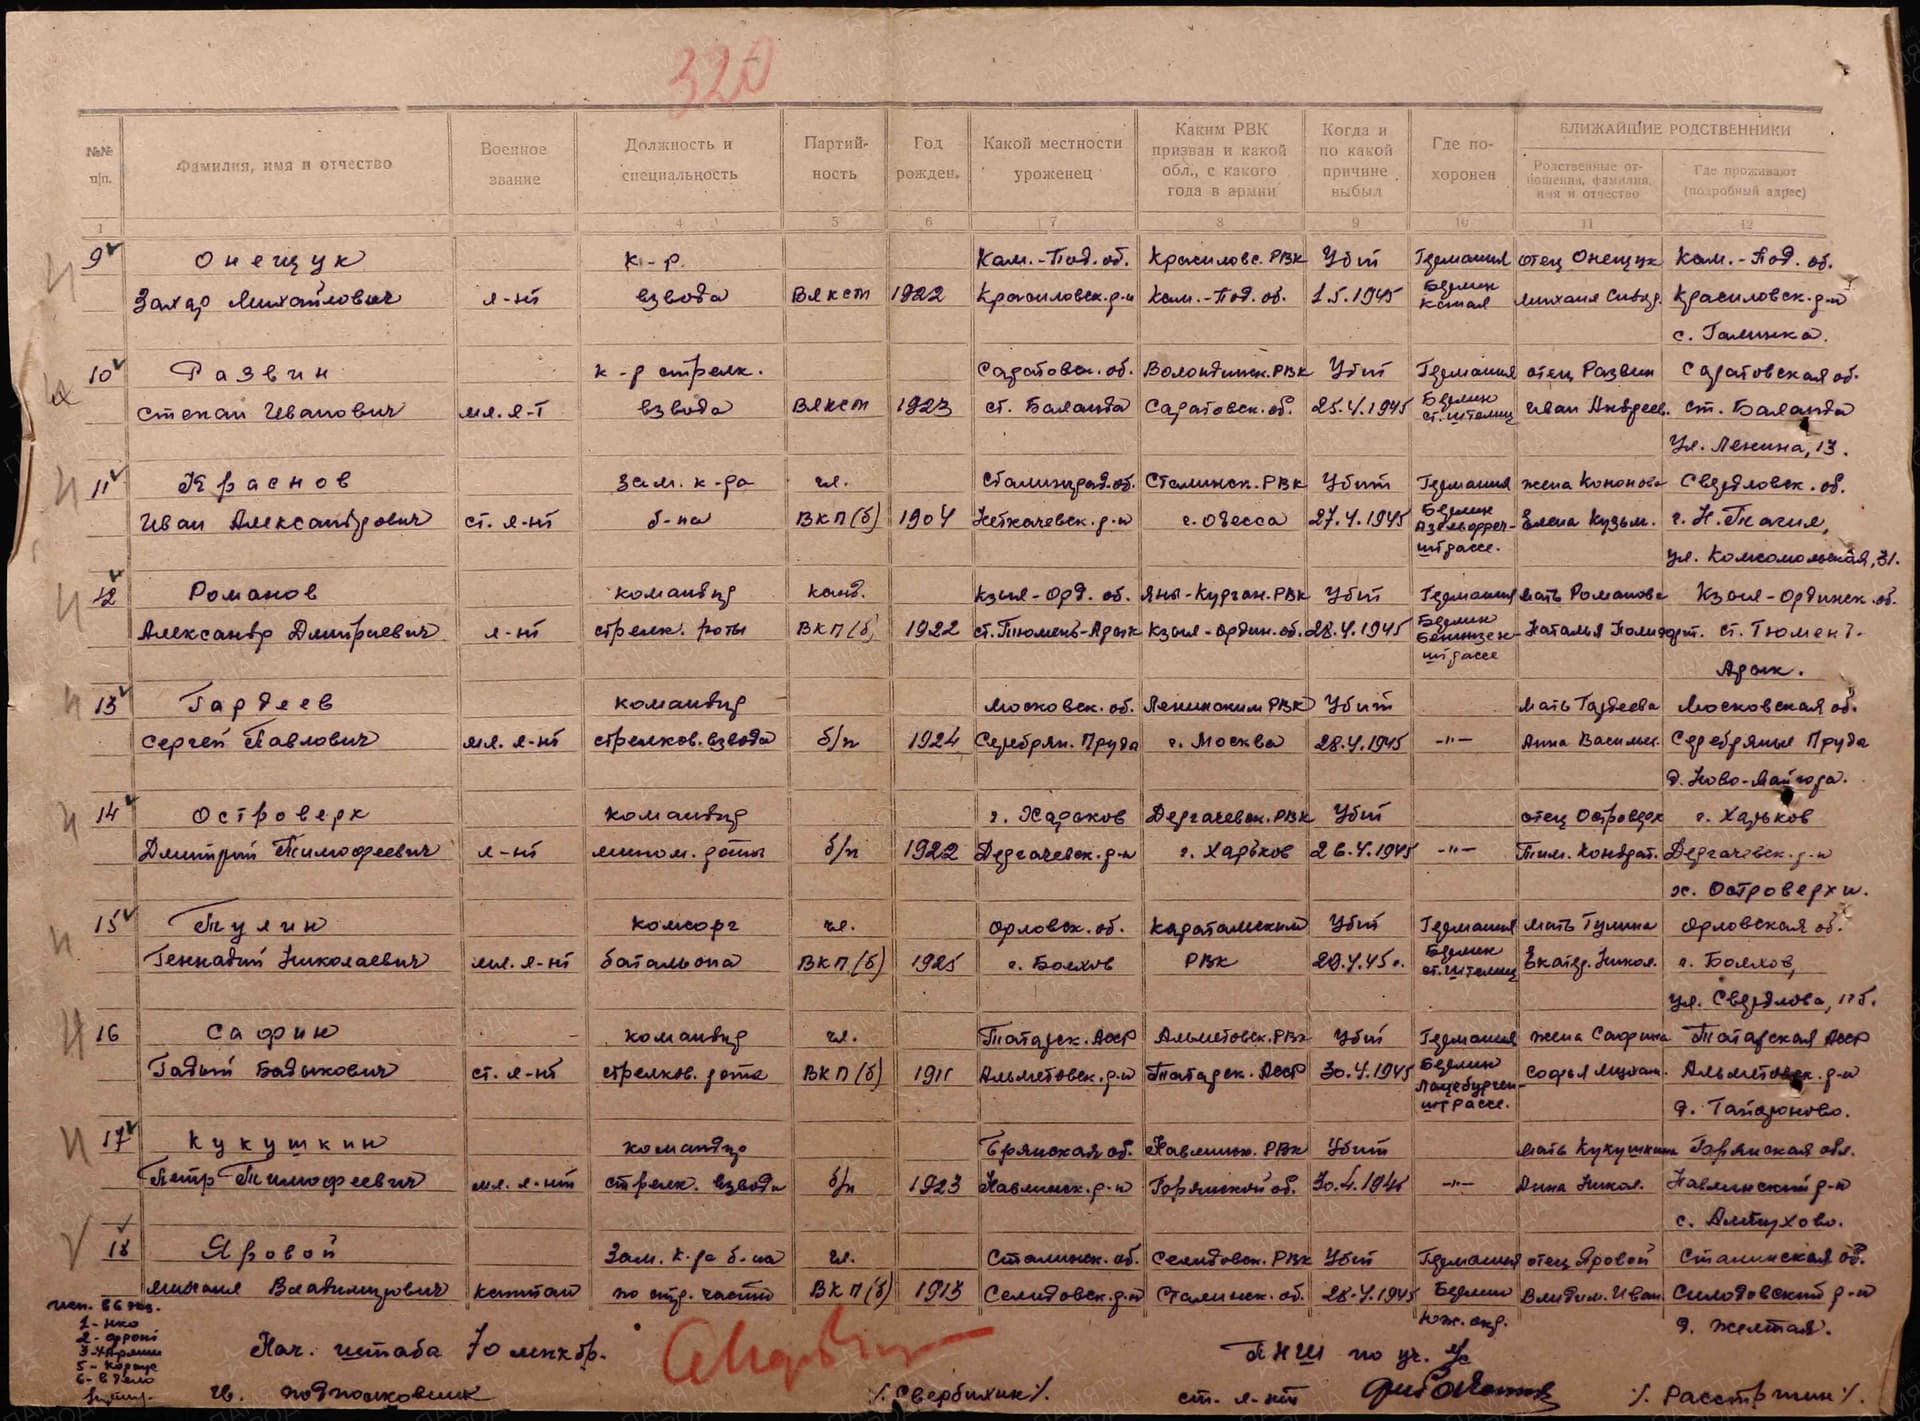 320
№№ п/п.
Фамилия, имя и отчество
Военное звание
Должность и специальность
Партий- ность
Год рожден.
Какой местности уроженец
Каким РВК призван и какой обл., с какого года в армии
Когда и по какой причине выбыл
Где по- хоронен
БЛИЖАЙШИЕ РОДСТВЕННИКИ
Родственные от- ношения, фамилия, имя и отчество
Где проживают (подробный адрес)
1 4 5 6 7 8 9 10 11 12
9 Онещук к-р. Кам.-Под. об. Красиловс. РВК Убит Германия отец Онещук Кам.-Под. об.
Захар Михайлович л-нт взвода ВЛКСМ 1922 Красиловск. р-н Кам.-Под. об. 1.5.1945 Берлин Михаил Красиловск. р-н
с. Галинка.
10 Развин к-р стрелк. Саратовск. об. РВК Убит Германия отец Развин Саратовская об.
Степан Иванович мл. л-т взвода ВЛКСМ 1923 ст. Баланда Саратовск. об. 25.4.1945 Берлин Иван Андреев. ст. Баланда
ст. Штелиц
Ул. Ленина, 13.
11 Краснов зам. к-ра чл. Сталинград. об. Сталинск. РВК Убит Германия жена Кононова Свердловск. об.
Иван Александрович ст. л-нт б-на ВКП(б) 1904 р-н г. Одесса 27.4.1945 Берлин Елена Кузьм. г. Н. Тагил,
штрассе. ул. Комсомольская, 31.
12 Романов командир канд. Кзыл-Орд. об. Яны-Курган. РВК Убит Германия мать Романова Кзыл-Ординск. об.
Александр Дмитриевич л-нт стрелк. роты ВКП(б) 1922 ст. Тюмень-Арык Кзыл-Ордин. об. 28.4.1945 Берлин Наталья ст. Тюмень-
штрассе Арык.
13 Гардеев командир Московск. об. Ленинским РВК Убит мать Гардеева Московская об.
Сергей Павлович мл. л-нт стрелков. взвода б/п 1924 Серебрян. Пруда г. Москва 28.4.1945 -"- Анна Васильев. Серебряные Пруда
14 Островерх командир г. Харьков Дергачевск. РВК Убит отец Островерх г. Харьков
Дмитрий Тимофеевич л-нт мином. роты б/п 1922 Дергачевск. р-н г. Харьков 26.4.1945 -"- Тим. Кондрат. Дергачевск. р-н
х. Островерхи.
15 Тулин комсорг чл. Орловск. об. Убит Германия мать Тулина Орловская об.
Геннадий Николаевич мл. л-нт батальона ВКП(б) 1925 г. Болхов РВК 29.4.45 г. Берлин Екатер. Никол. г. Болхов,
ст. Штелиц
ул. Свердлова,
16 Сафин командир чл. Татарск. АССР Альметовск. РВК Убит Германия жена Сафина Татарская АССР
Гадый Бадыкович ст. л-нт стрелков. рота ВКП(б) 1911 Альметовск. р-н Татарск. АССР 30.4.1945 Берлин Софья Альметовск. р-н
штрассе.
17 Кукушкин командир Брянская об. Навлинск. РВК Убит мать Кукушкина Брянская обл.
Петр Тимофеевич мл. л-нт стрелк. взвода б/п 1923 Навлинск. р-н Брянской об. 30.4.1945 -"- Анна Никол. Навлинский р-н
с. Алтухово.
18 Яровой Зам. к-ра б-на чл. Сталинск. об. Селидовск. РВК Убит Германия отец Яровой Сталинская об.
Михаил Владимирович капитан по стр. части ВКП(б) 1913 Селидовск. р-н Сталинск. об. 28.4.1945 Берлин Владим. Иван. Силодовский р-н
Юж. окр. д. Желтая.
исп. в 6 экз.
1-нко
2-фронт
3-армии
5-корпус
6-в дело
Нач. штаба 70 мехбр.
гв. подполковник /Свербихин/.
ПНШ по уч.
ст. л-нт